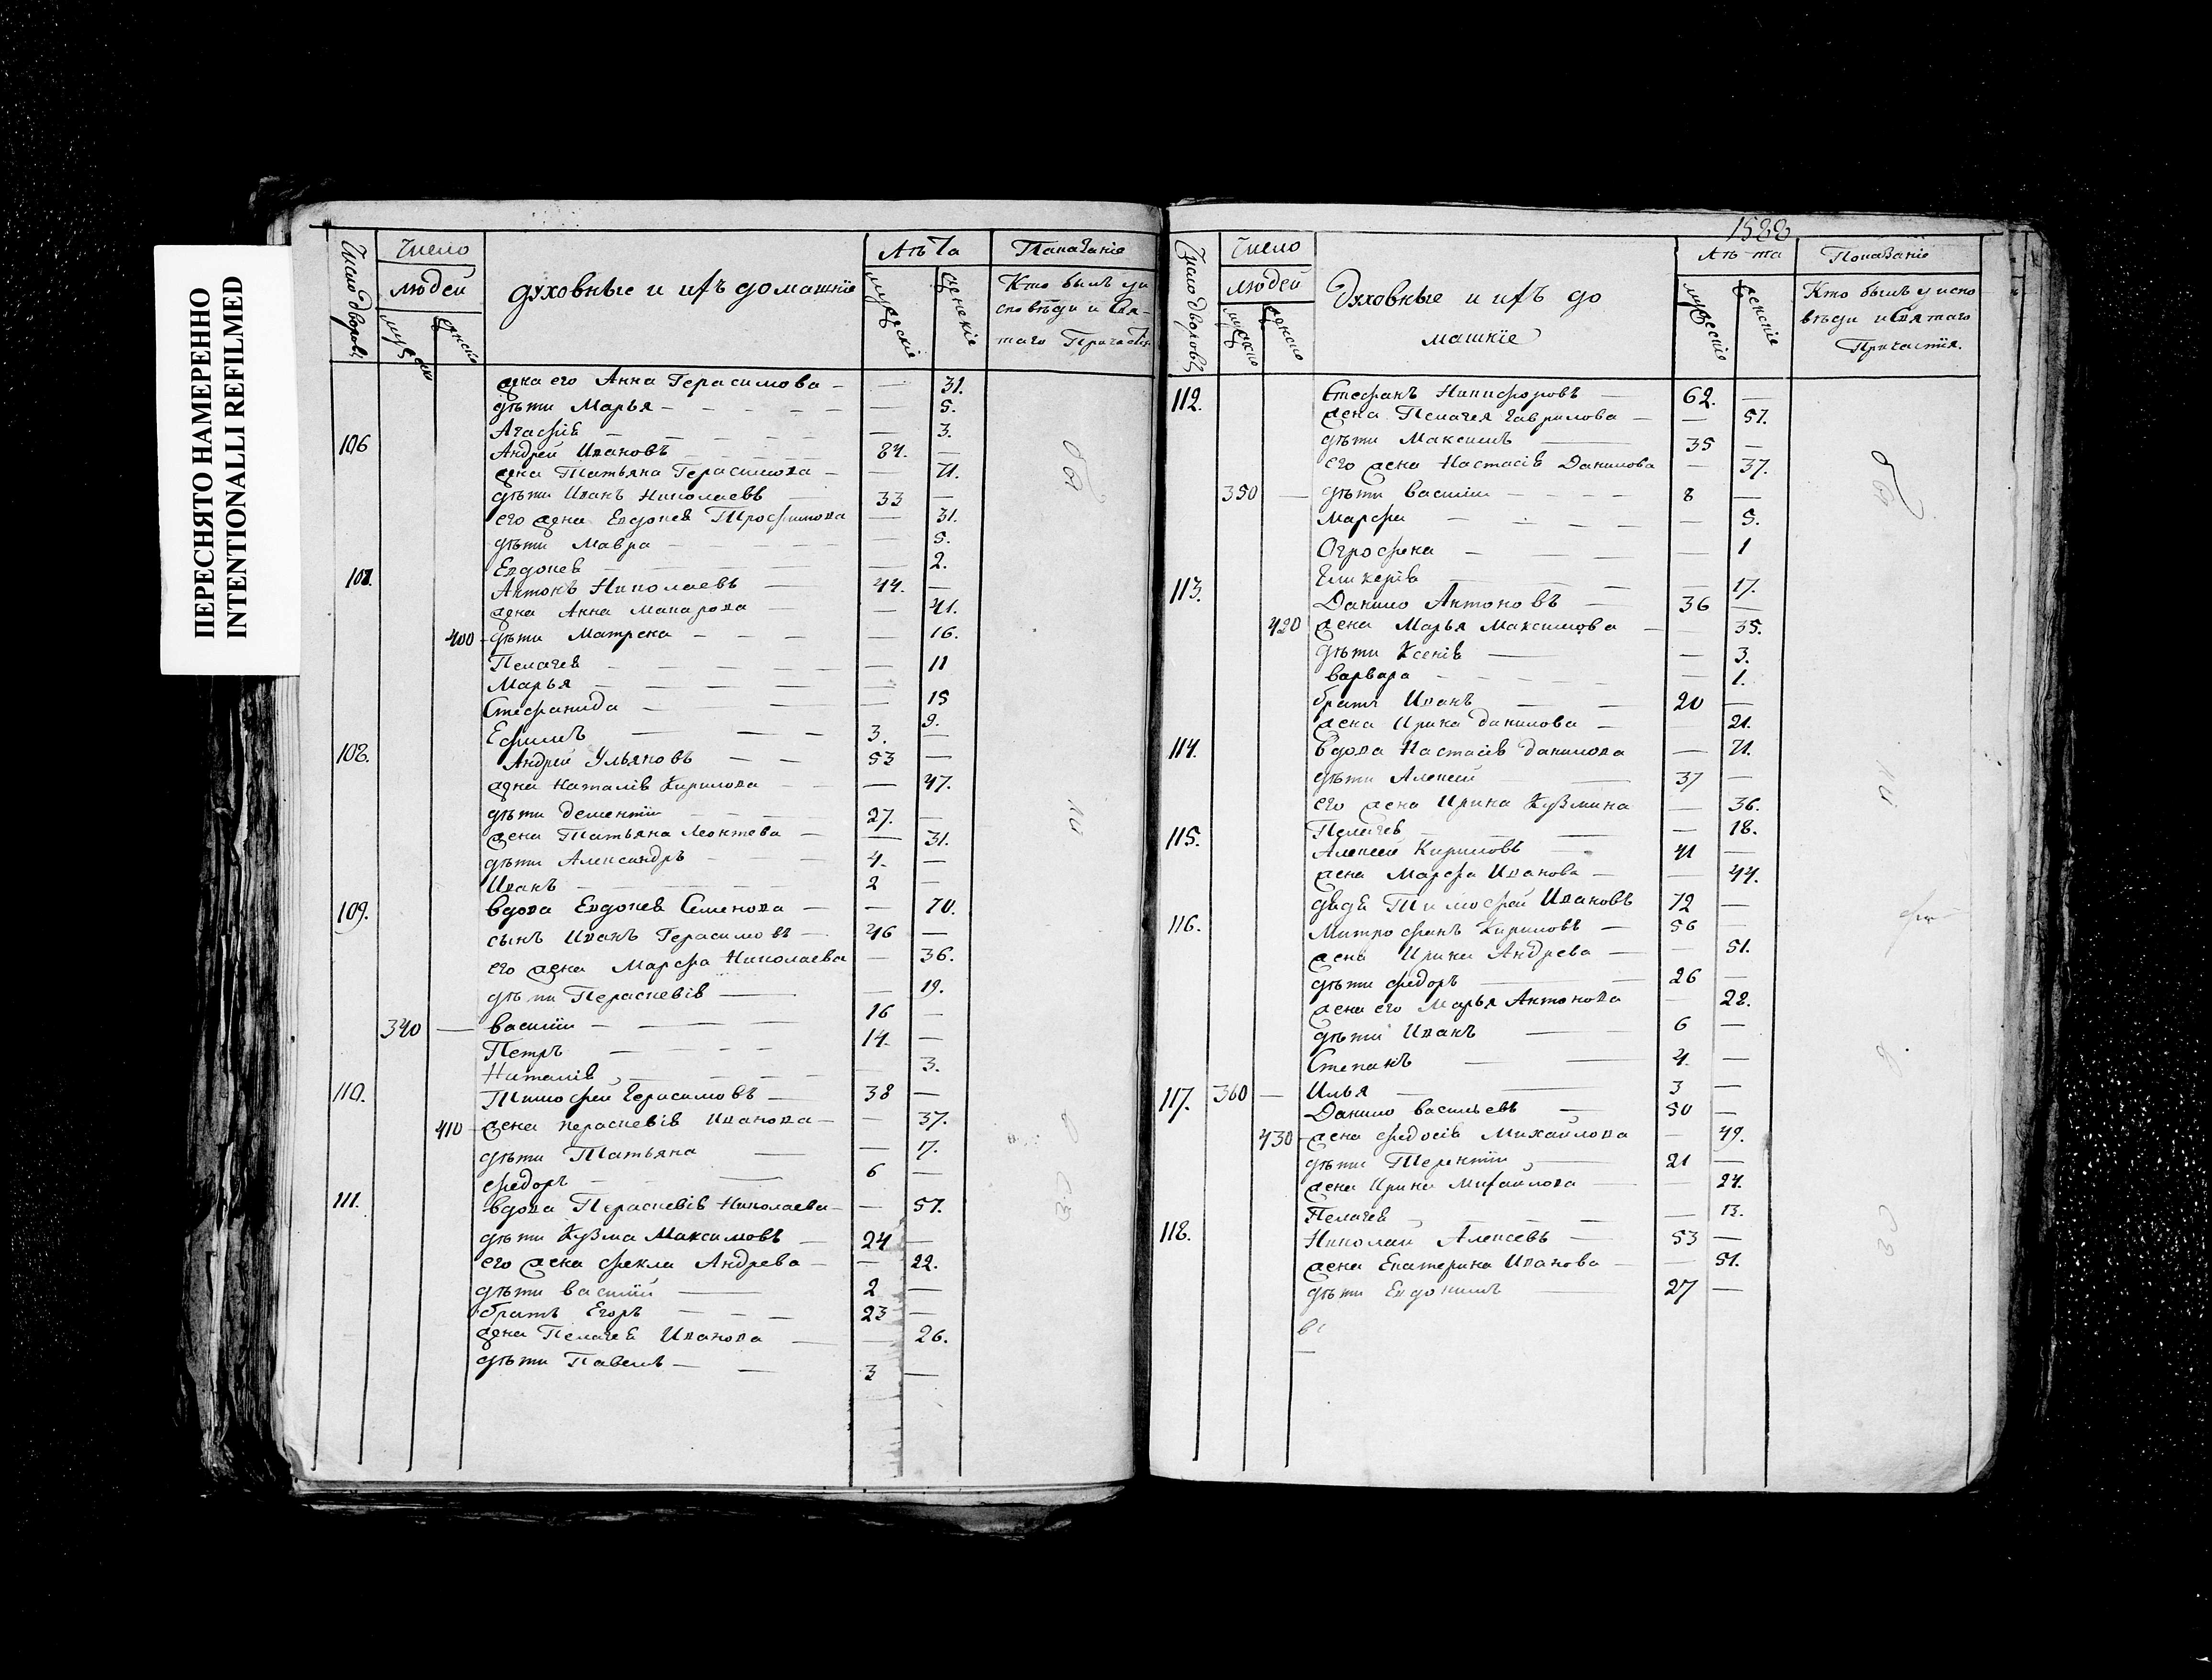 ПЕРЕСНЯТО НАМЕРЕННО
INTENTIONALLI REFILMED
Число дворовъ
Число
людей
мужеско
женско
духовные и ихъ домашніе
Лѣта
мужескіе
женскіе
Показаніе
Кто былъ у и
сповѣди и Свя-
таго Причастія
жена его Анна Герасимова — — 31.
дѣти Марья — — 5.
Агафіѣ — — 3.
106 Андрей Ивановъ 84. —
жена Татьяна Герасимова — — 71.
дѣти Иванъ Николаевъ 33 —
его жена Евдокеѣ Трофимова — 31.
дѣти Мавра — — 5.
Евдокеѣ — — 2.
107. Антонъ Николаевъ — 44. —
жена Анна Макарова — — 41.
400 дѣти Матрена — — 16.
Пелагеѣ — — 11
Марья — — 15
Стефанида — — 9.
Ефимъ — 3. —
108. Андрей Ульяновъ — 53 —
жена Наталіѣ Кирилова — — 47.
дѣти дементіи 27. —
жена Татьяна Леонтева — — 31.
дѣти Александръ — 4. —
Иванъ — 2 —
109. вдова Евдокеѣ Семенова — — 70.
сынъ Иванъ Герасимовъ — 46 —
его жена Марфа Николаева — 36.
дѣти Пераскевіѣ — — 19.
16 —
340 — василіи —
Петръ — 14. —
Наталіѣ — 3.
110. Тимофей Герасимовъ — 38 —
410 жена пераскевіѣ Иванова — — 37.
дѣти Татьяна — — 17.
федоръ — 6 —
111. вдова Пераскевіѣ Николаева — — 57.
дѣти Кузма Максимовъ — 24 —
его жена фекла Андрева — — 22.
дѣти василіи — 2 —
братъ Егоръ — 23 —
жена Пелагеѣ Иванова — 26.
дѣти Павелъ — 3 —
1588
Число дворовъ
Число
людей
мужеско
женско
Духовные и ихъ до
машкіе
Лѣ-та
мужескіе
женскіе
Показаніе
Кто былъ у испо
вѣди и Святаго
Причастія.
112. Стефанъ Никифоровъ — 62. —
жена Пелагея Гаврилова — — 57.
дѣти Максимъ — 35 —
его жена Настасіѣ Данилова — 37.
350 — дѣти василіи — 8 —
Марфа — — 5.
Огрофена — — 1
Гликеріѣ — — 17.
113. Данило Антоновъ — 36 —
420 жена Марья Максимова — — 35.
дѣти Ксеніѣ — — 3.
варвара — — 1.
братъ Иванъ — 20 —
жена Ирина данилова — 21.
114. вдова Настасіѣ данилова — 71.
дѣти Алексей — 37 —
его жена Ирина Кузмина — 36.
Пелагеѣ — — 18.
115. Алексей Кириловъ — 41 —
жена Марфа Иванова — — 44.
дядѣ Тимофей Ивановъ 72 —
116. Митрофанъ Кириловъ — 56 —
жена Ирина Андрева — — 51.
дѣти федоръ — 26 —
жена его Марья Антонова — 28.
дѣти Иванъ — 6 —
Степанъ — 4. —
360 — Илья — 3 —
117. Данило васильевъ — 50 —
430 жена федосіѣ Михайлова — 49.
дѣти Терентіи — 21 —
жена Ирина Михайлова — — 24.
Пелагеѣ — — 13.
118. Николай Алексевъ — 53 —
жена Екатерина Иванова — — 51.
дѣти Евдокимъ — 27 —